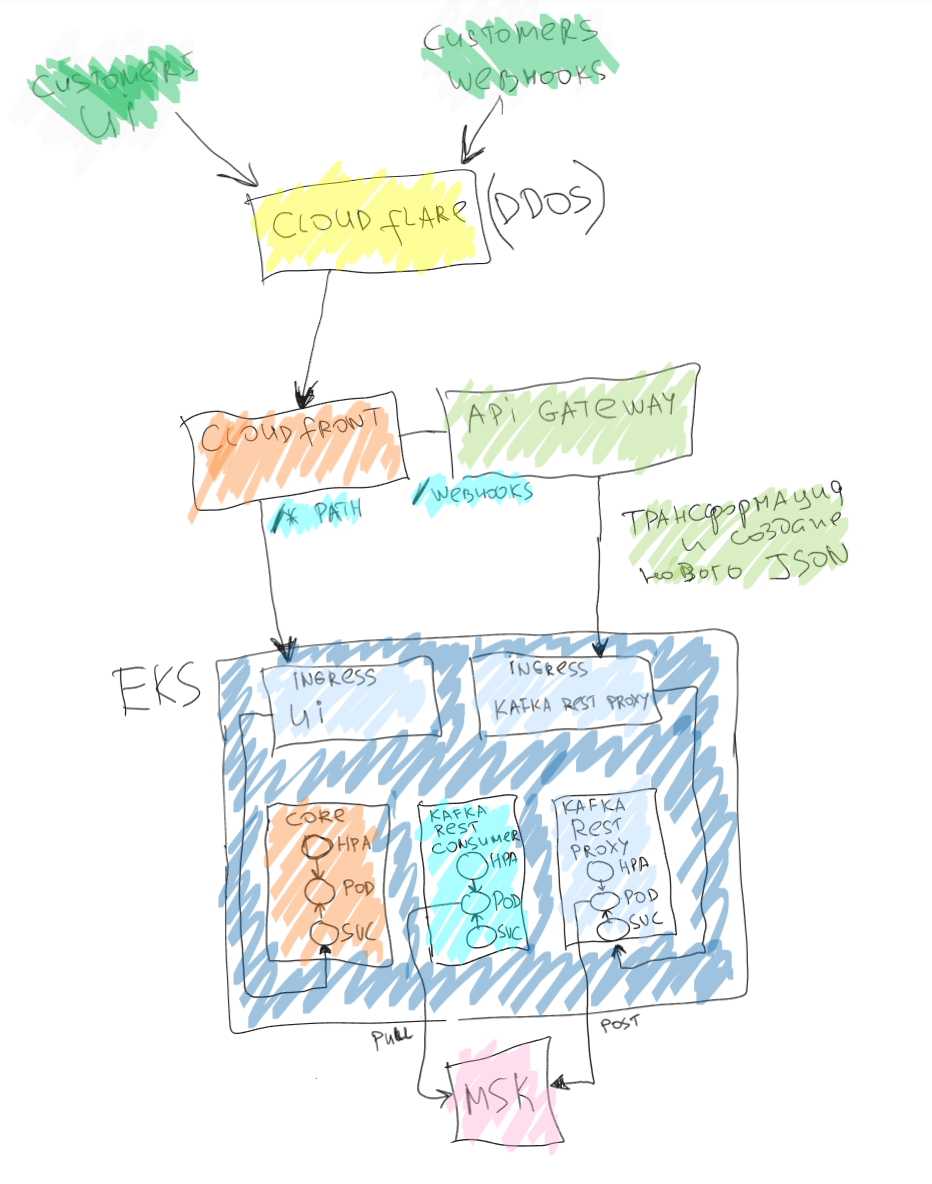 CUSTOMERS
Ui
CUSTOMERS
WEBHOOKS
CLOUD fLARe
(DDOS)
CLOUD fRONT
APi GATeWAY
/* PATH
/WeBHOOKS
ТРАНСформация
и создание
нового JSON
EKS
iNGRESS
Ui
iNGRESS
KAFKA REST PROXY
CORe
HPA
POD
SVC
KAFKA
REST
CONSUMER
HPA
POD
SVC
KAFKA
REST
PROXY
HPA
POD
SVC
PULL
POST
MSK